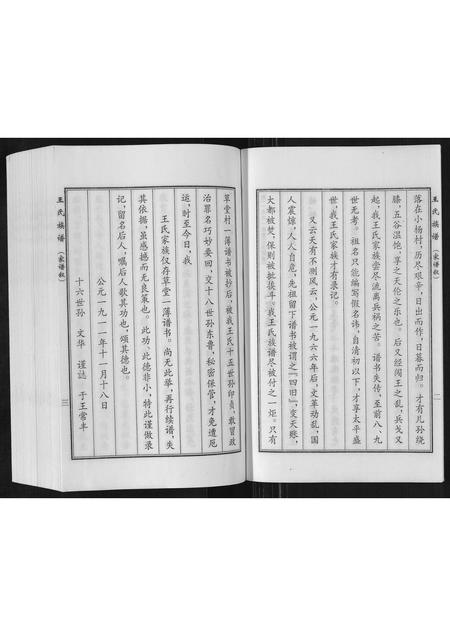 王氏族谱（家谱叙）
二
落在小杨村，历尽艰辛，日出而作，日暮而归。才有儿孙绕
膝，五谷温饱，享之天伦之乐也。后又经闯王之乱，兵戈又
起，我王氏家族尝尽流离兵祸之苦。谱书失传，至前八、九
世无考。祖名只能编写假名讳，自清初以下，才享太平盛
世，我王氏家族才有录记。
又云天有不测风云，公元一九六六年后，文革动乱，国
人震惊，人人自危，先祖留下谱书被谓之『四旧』，变天账，
大都被焚，保则被批挨斗。我王氏族谱尽被付之一炬。只有
草堂村一薄谱书被抄后，被我王氏十五世孙印贞，敢冒政
治罪名巧妙要回，交十八世孙东鲁，秘密保管，才免遭厄
运，时至今日，我
王氏家族仅存草堂一薄谱书。尚无此举，再行续谱，失
其依据，虽感撼而无良策也。此功、此德非小，特此谨做录
记，留名后人，嘱后人歌其功也，颂其德也。
公元一九一二年十一月十八日
十六世孙 文华 谨志 于王常丰
王氏族谱（家谱叙）
三